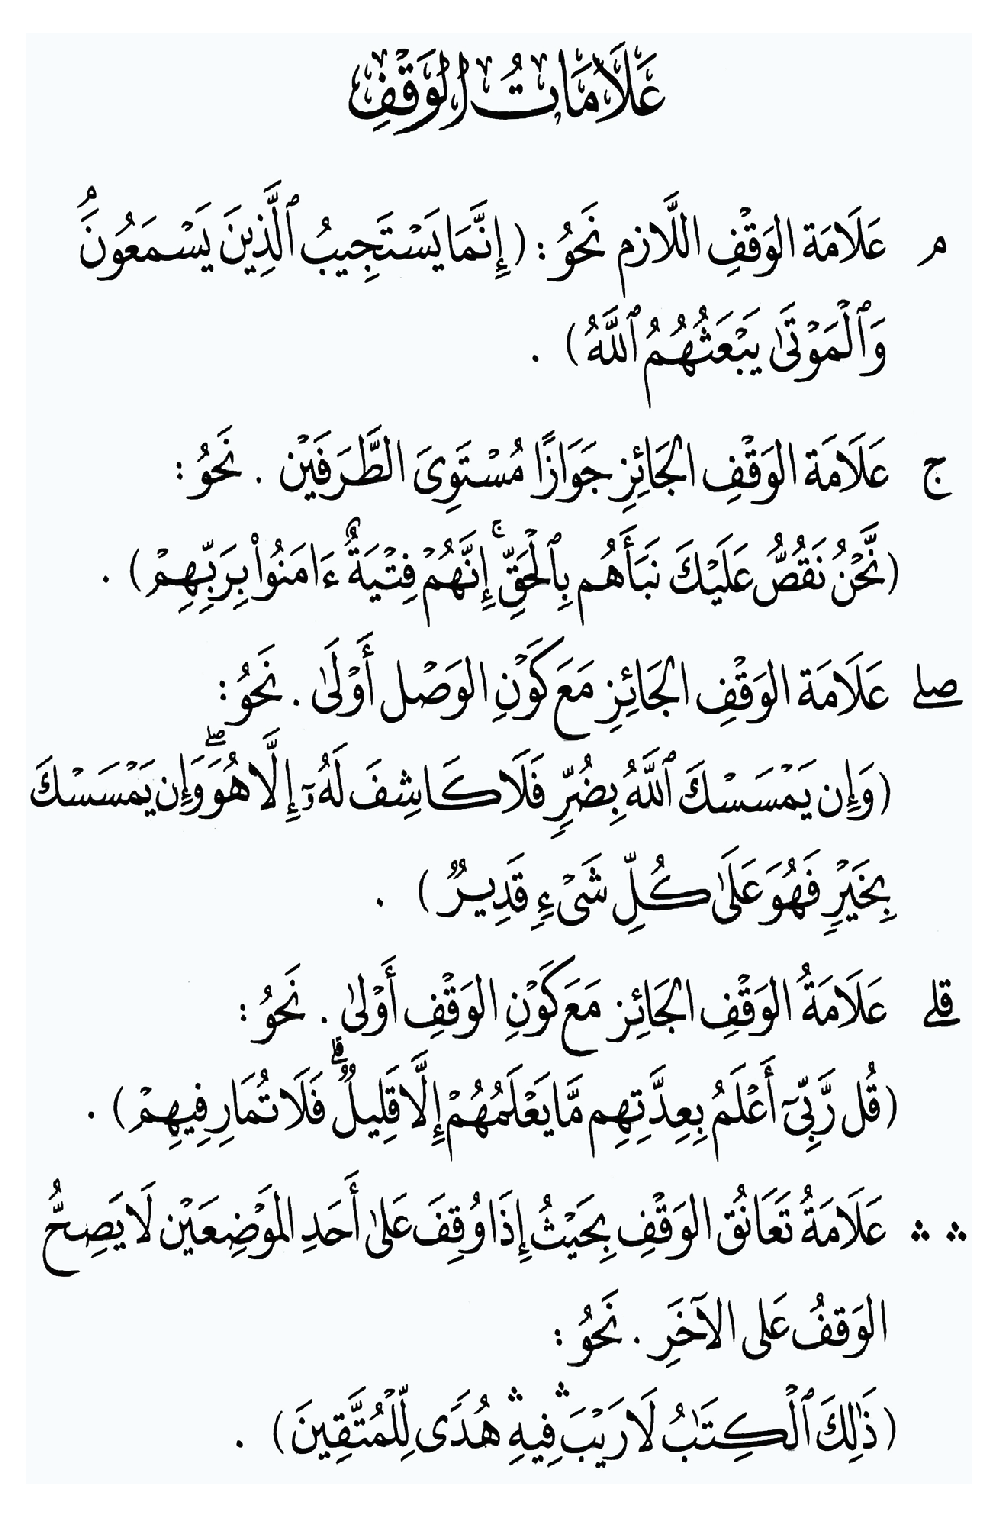 عَلَامَاتُ الوَقْفِ
م عَلَامَة الوَقْفِ اللَّازِم نَحْوُ : ( إِنَّمَا يَسْتَجِيبُ ٱلَّذِينَ يَسْمَعُونَۘ
وَٱلْمَوْتَىٰ يَبْعَثُهُمُ ٱللَّهُ ) .
ج عَلَامَة الوَقْفِ الجَائِزِ جَوَازًا مُسْتَوِىَ الطَّرَفَيْن . نَحْوُ :
(نَّحْنُ نَقُصُّ عَلَيْكَ نَبَأَهُم بِٱلْحَقِّۚ إِنَّهُمْ فِتْيَةٌ ءَامَنُوا۟ بِرَبِّهِمْ) .
صلے عَلَامَة الوَقْفِ الجَائِزِ مَعَ كَوْنِ الوَصْل أَوْلَىٰ . نَحْوُ :
(وَإِن يَمْسَسْكَ ٱللَّهُ بِضُرٍّ فَلَا كَاشِفَ لَهُۥٓ إِلَّا هُوَۖ وَإِن يَمْسَسْكَ
بِخَيْرٍ فَهُوَ عَلَىٰ كُلِّ شَىْءٍ قَدِيرٌ ) .
قلے عَلَامَةُ الوَقْفِ الجَائِز مَعَ كَوْنِ الوَقْفِ أَوْلىٰ . نَحْوُ :
(قُل رَّبِّىٓ أَعْلَمُ بِعِدَّتِهِم مَّا يَعْلَمُهُمْ إِلَّا قَلِيلٌۗ فَلَا تُمَارِ فِيهِمْ) .
∴ ∴ عَلَامَةُ تَعَانُق الوَقْفِ بِحَيْثُ إِذَا وُقِفَ عَلىٰ أَحَدِ المَوْضِعَيْن لَا يَصِحُّ
الوَقفُ عَلى الآخَرِ . نَحْوُ :
(ذَٰلِكَ ٱلْكِتَٰبُ لَا رَيْبَۛ فِيهِۛ هُدًى لِّلْمُتَّقِينَ) .